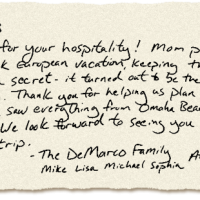 s
for your hospitality! Mom p
k European vacation, keeping th
secret - it turned out to be the
. Thank you for helping us plan
saw everything from Omaha Bea
We look forward to seeing you
trip.
- The DeMarco Family
Mike Lisa Michael Sophia